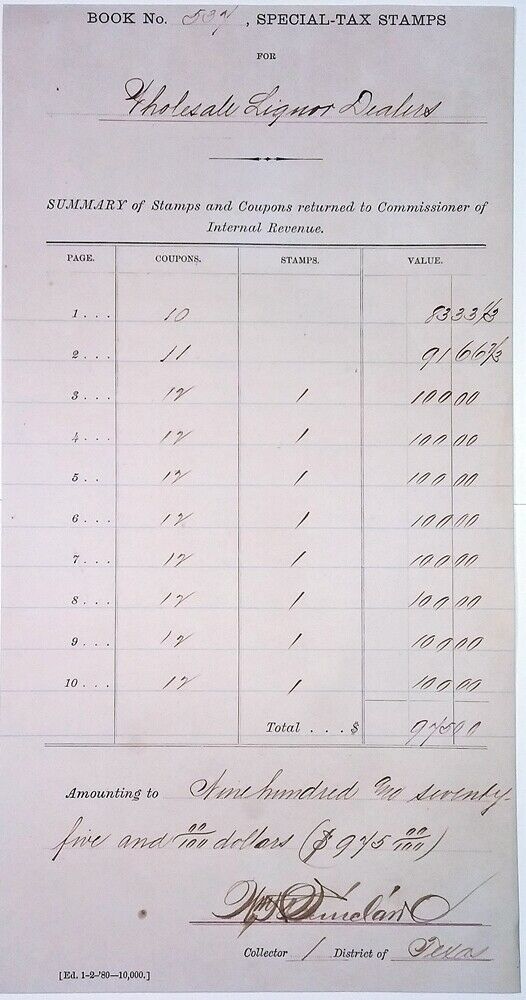 BOOK No. 537, SPECIAL-TAX STAMPS
FOR
Wholesale Liquor Dealers
SUMMARY of Stamps and Coupons returned to Commissioner of
Internal Revenue.
PAGE. COUPONS. STAMPS. VALUE.
1 . . . 10 83 33 1/3
2 . . . 11 91 66 2/3
3 . . . 12 1 100 00
4 . . . 12 1 100 00
5 . . 12 1 100 00
6 . . . 12 1 100 00
7 . . . 12 1 100 00
8 . . . 12 1 100 00
9 . . . 12 1 100 00
10 . . . 12 1 100 00
Total . . . $ 975 00
Amounting to Nine hundred and seventy-
five and 00/100 dollars ($975 00/100)
Wm Sinclair
Collector 1 District of Texas
[Ed. 1-2-'80—10,000.]